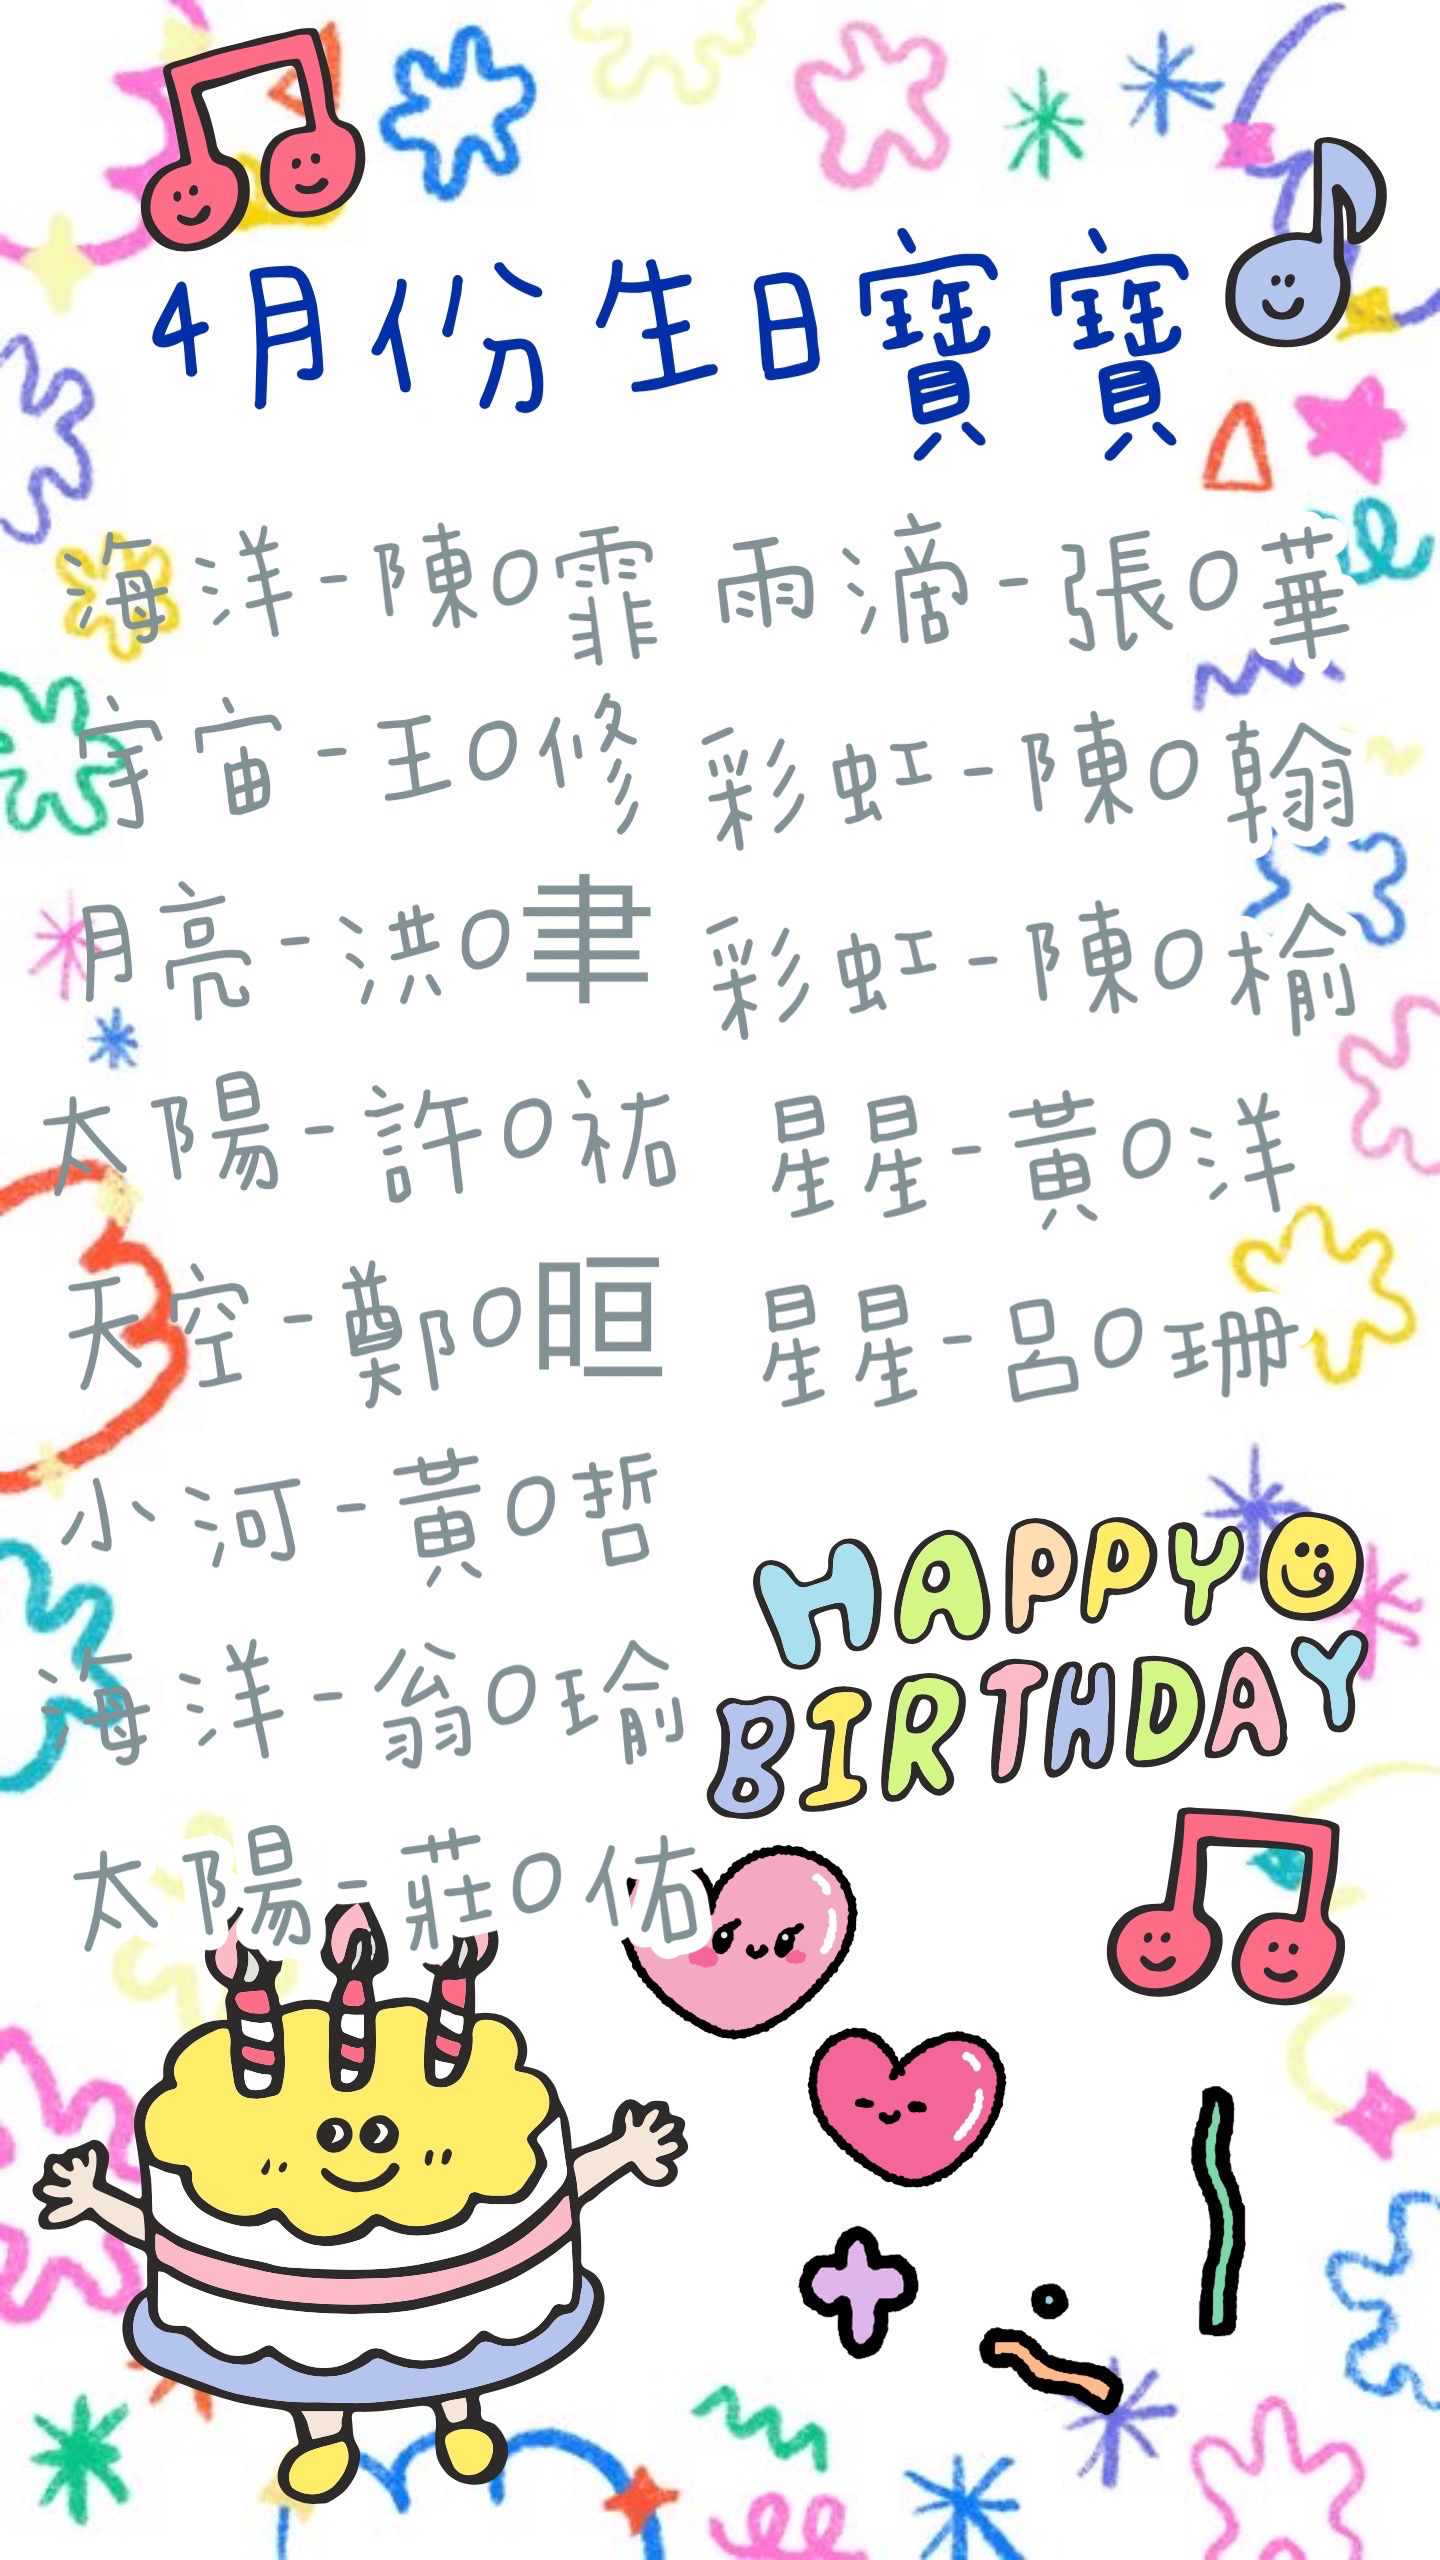 4月份生日寶寶
海洋-陳O霏 雨滴-張O華
宇宙-王O修 彩虹-陳O翰
月亮-洪O聿 彩虹-陳O榆
太陽-許O祐 星星-黃O洋
天空-鄭O晅 星星-呂O珊
小河-黃O哲
海洋-翁O瑜
太陽-莊O佑
HAPPY
BIRTHDAY